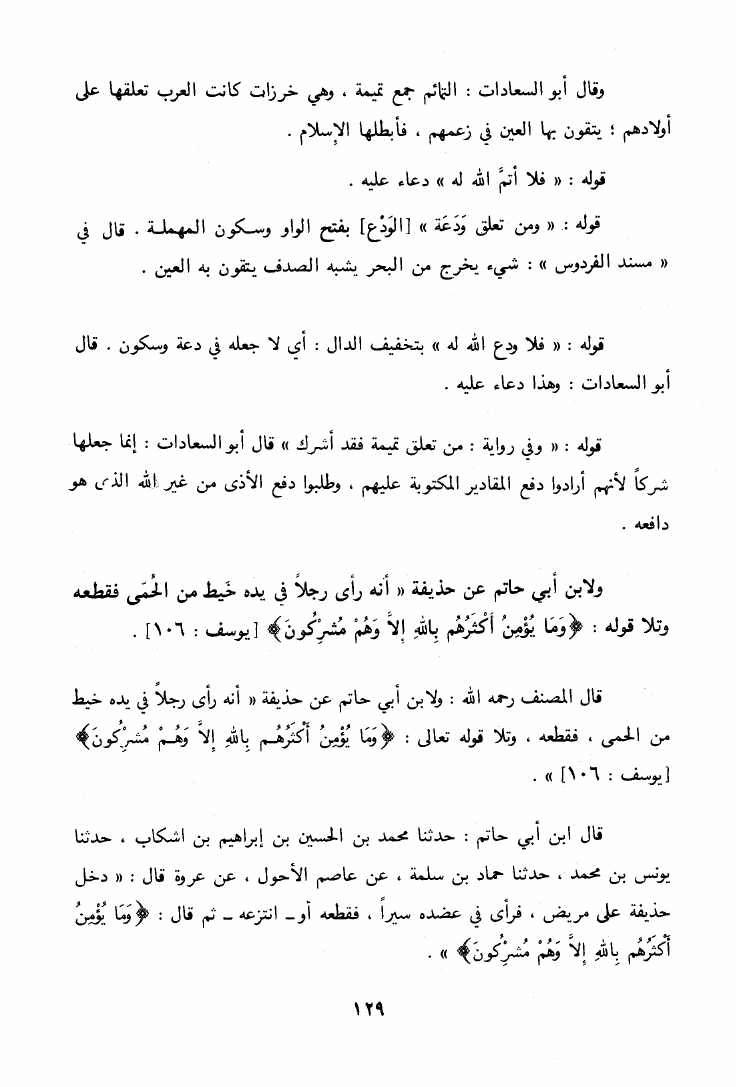 وقال أبو السعادات : التمائم جمع تميمة ، وهي خرزات كانت العرب تعلقها على
أولادهم ؛ يتقون بها العين في زعمهم ، فأبطلها الإسلام .
قوله : « فلا أتمَّ الله له » دعاء عليه .
قوله : « ومن تعلق وَدَعَة » [الوَدْع] بفتح الواو وسكون المهملة . قال في
« مسند الفردوس » : شيء يخرج من البحر يشبه الصدف يتقون به العين .
قوله : « فلا ودع الله له » بتخفيف الدال : أي لا جعله في دعة وسكون . قال
أبو السعادات : وهذا دعاء عليه .
قوله : « وفي رواية : من تعلق تميمة فقد أشرك » قال أبو السعادات : إنما جعلها
شركاً لأنهم أرادوا دفع المقادير المكتوبة عليهم ، وطلبوا دفع الأذى من غير الله الذى هو
دافعه .
ولابن أبي حاتم عن حذيفة « أنه رأى رجلاً في يده خَيط من الحُمَى فقطعه
وتلا قوله : ﴿وَمَا يُؤْمِنُ أَكْثَرُهُم بِاللهِ إِلاَّ وَهُمْ مُشْرِكُونَ﴾ [يوسف : ١٠٦] .
قال المصنف رحمه الله : ولابن أبي حاتم عن حذيفة « أنه رأى رجلاً في يده خيط
من الحمى ، فقطعه ، وتلا قوله تعالى : ﴿وَمَا يُؤْمِنُ أَكْثَرُهُم بِاللهِ إِلاَّ وَهُمْ مُشْرِكُونَ﴾
[يوسف : ١٠٦] » .
قال ابن أبي حاتم : حدثنا محمد بن الحسين بن إبراهيم بن اشكاب ، حدثنا
يونس بن محمد ، حدثنا حماد بن سلمة ، عن عاصم الأحول ، عن عروة قال : « دخل
حذيفة على مريض ، فرأى في عضده سيراً ، فقطعه أو ـ انتزعه ـ ثم قال : ﴿وَمَا يُؤْمِنُ
أَكْثَرُهُم بِاللهِ إِلاَّ وَهُمْ مُشْرِكُونَ﴾ » .
١٢٩